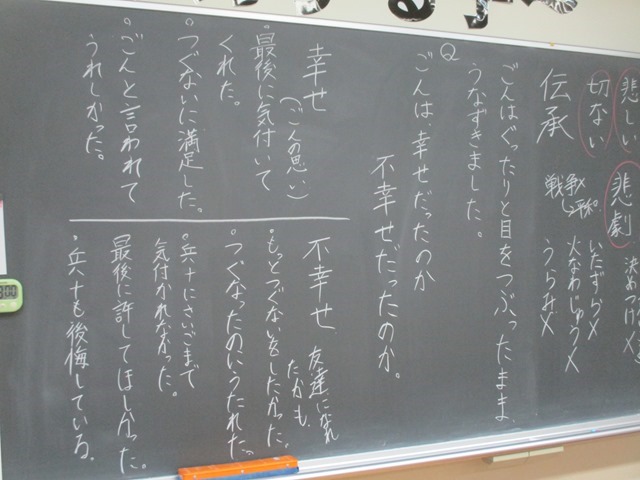 悲しい
切ない
悲劇
伝承
戦争
平和
いたずら✕
火なわじゅう✕
うらみ✕
ごんはぐったりと目をつぶったまま、
うなずきました。
Q
ごんは幸せだったのか
不幸せだったのか。
幸せ
(ごんの思い)
・最後に気付いて
くれた。
・つぐないに満足した。
・ごんと言われて
うれしかった。
不幸せ
友達になれ
たかも
・もっとつぐないをしたかった。
・つぐなったのにうたれた。
・兵十にさいごまで
気付かれなかった。
・最後に許してほしかった。
・兵十も後悔している。